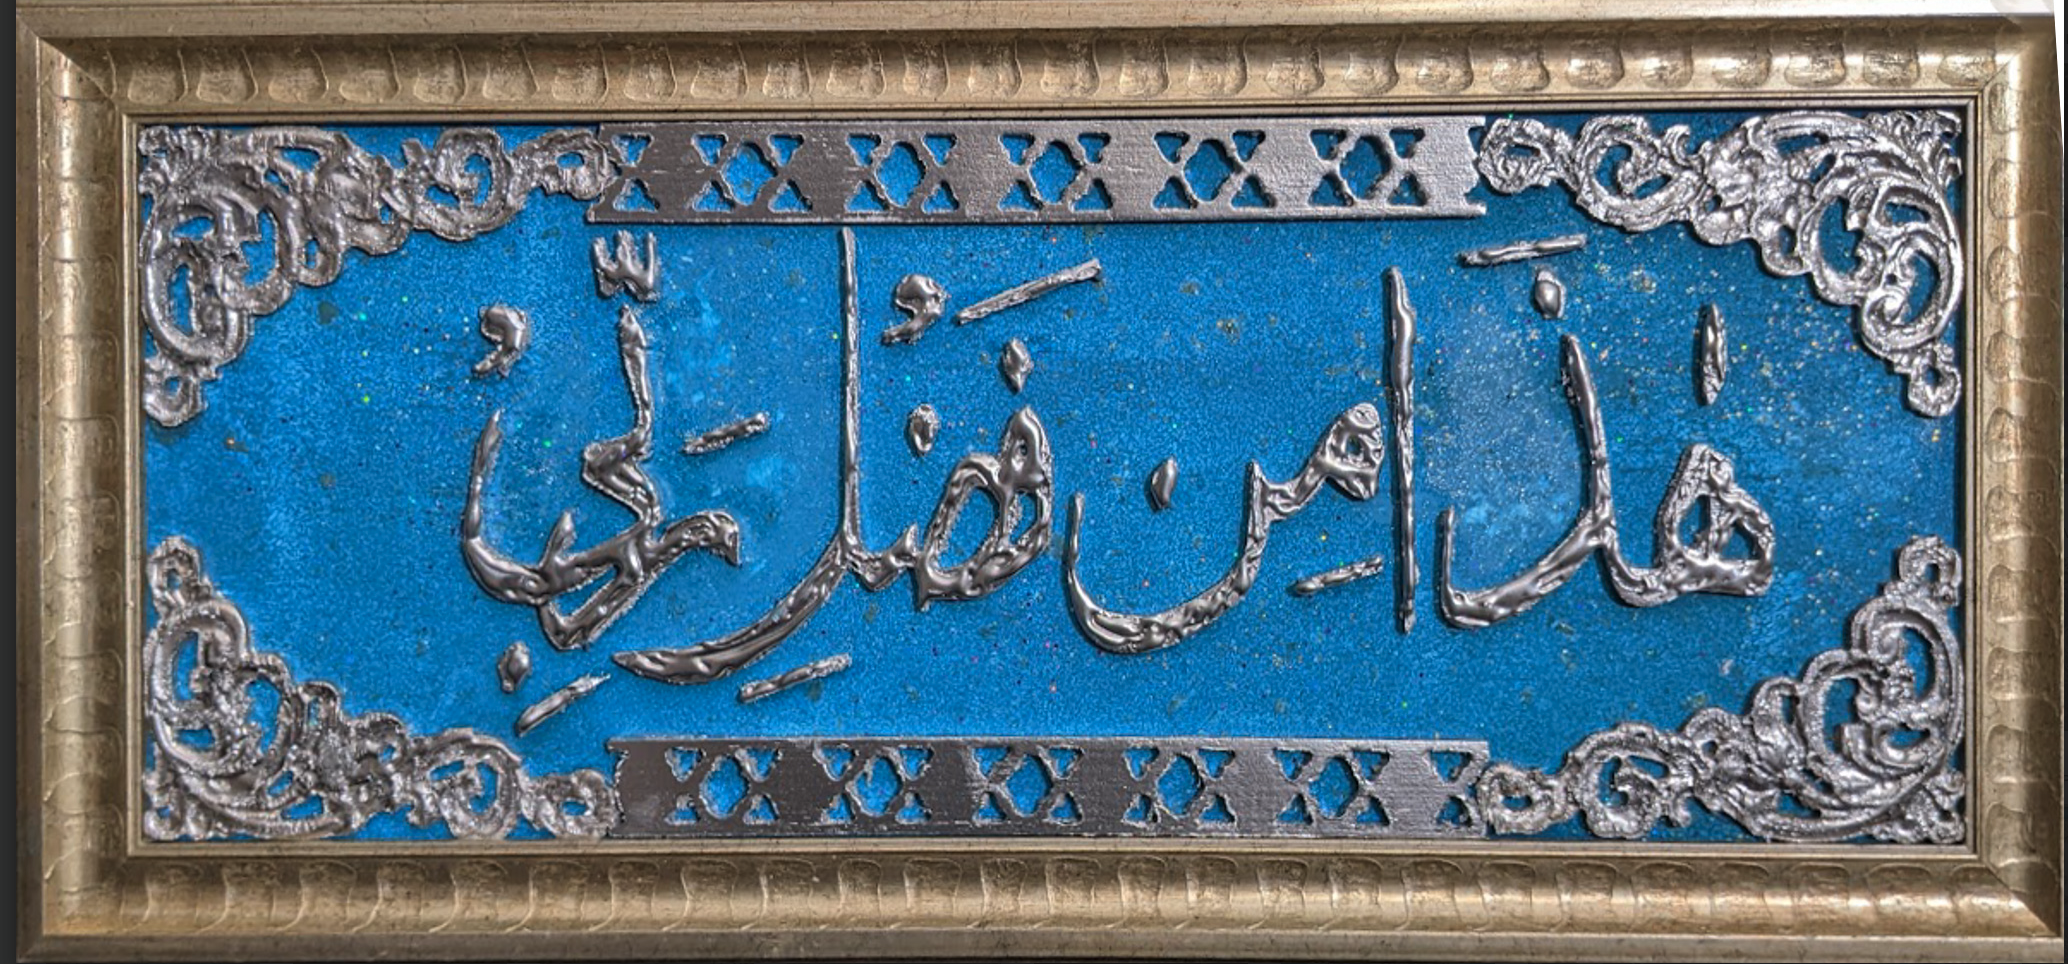 هٰذَا مِن فَضْلِ رَبِّيْ